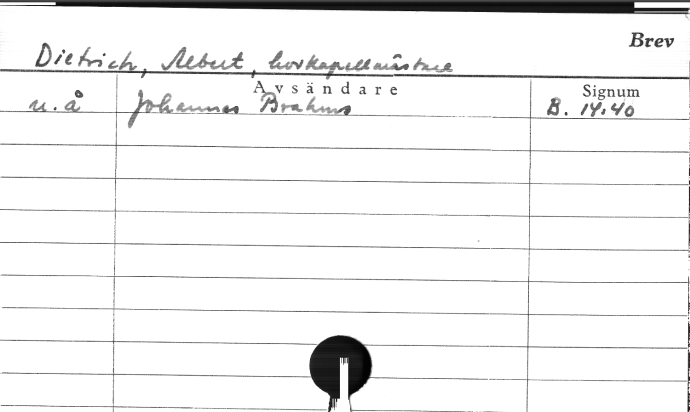 Brev
Dietrich, Albert, hovkapellmästare
Avsändare Signum
u. å Johannes Brahms B. 14:40